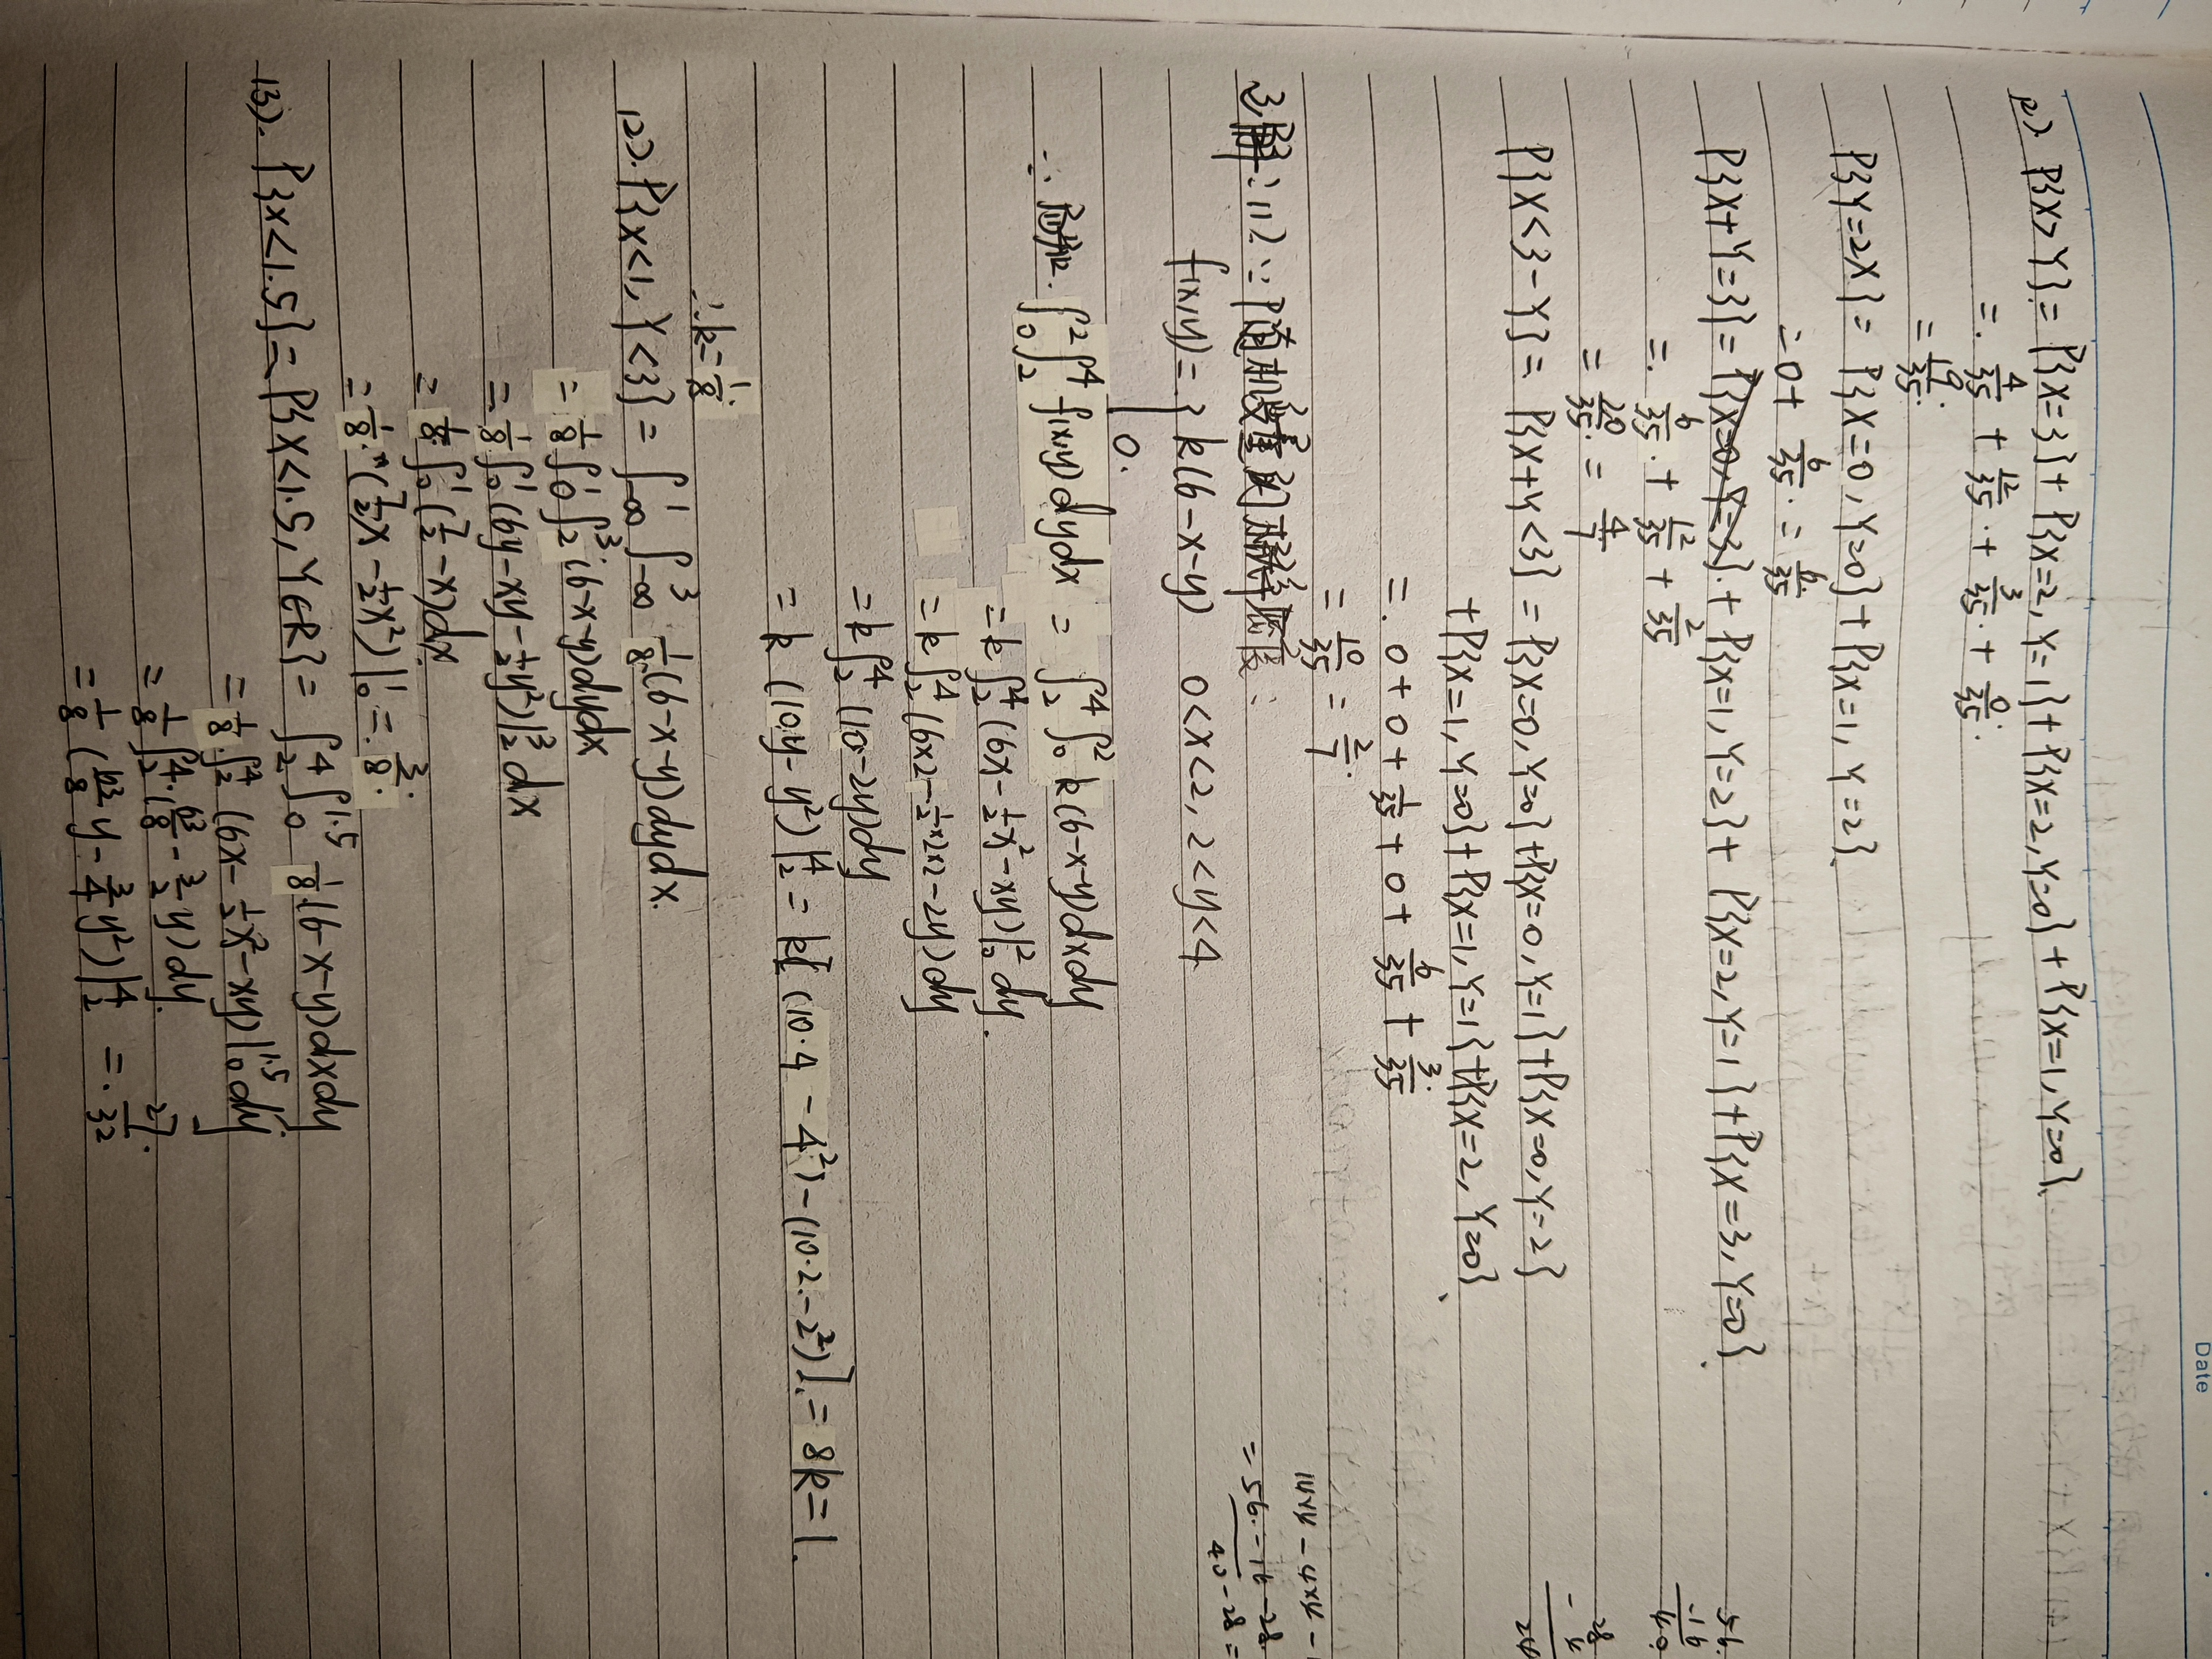 Date
(2). P{X>Y} = P{X=3} + P{X=2, Y=1} + P{X=2, Y=0} + P{X=1, Y=0}.
=. 4/35 + 12/35. + 3/35. + 0/35.
= 19/35.
P{Y=2X} = P{X=0, Y=0} + P{X=1, Y=2}.
= 0 + 6/35. = 6/35
P{X+Y=3} = P{X=0, Y=3}. + P{X=1, Y=2} + P{X=2, Y=1} + P{X=3, Y=0}.
=. 6/35. + 12/35 + 2/35
= 20/35. = 4/7
P{X<3-Y} = P{X+Y<3} = P{X=0, Y=0} + P{X=0, Y=1} + P{X=0, Y=2}
+ P{X=1, Y=0} + P{X=1, Y=1} + P{X=2, Y=0}.
=. 0 + 0 + 1/35 + 0 + 6/35 + 3/35.
= 10/35 = 2/7.
3.解: (1) ∵ 随机变量的概率密度:
f(x,y) = { k(6-x-y) 0<x<2, 2<y<4
0.
∴ ∫₀² ∫₂⁴ f(x,y)dydx = ∫₂⁴ ∫₀² k(6-x-y)dxdy
= k ∫₂⁴ (6x - 1/2x² - xy)|₀² dy.
= k ∫₂⁴ (6×2 - 1/2×2×2 - 2y)dy
= k ∫₂⁴ (10-2y)dy
= k (10y - y²)|₂⁴ = k[(10·4 - 4²) - (10·2 - 2²)]. = 8k = 1.
∴ k = 1/8.
(2). P{X<1, Y<3} = ∫₋∞¹ ∫₋∞³ 1/8(6-x-y)dydx.
= 1/8 ∫₀¹ ∫₂³ (6-x-y)dydx
= 1/8 ∫₀¹ (6y - xy - 1/2y²)|₂³ dx
= 1/8 ∫₀¹ (7/2 - x)dx
= 1/8 · (7/2x - 1/2x²)|₀¹ =. 3/8.
(3). P{X<1.5} = P{X<1.5, Y∈R} = ∫₂⁴ ∫₀^1.5 1/8(6-x-y)dxdy
= 1/8 ∫₂⁴ (6x - 1/2x² - xy)|₀^1.5 dy.
= 1/8 ∫₂⁴ (63/8 - 3/2y)dy.
= 1/8 (63/8 y - 3/4y²)|₂⁴ =. 27/32.
= 56 - 16 - 28
40 - 28 =
56
-16
40